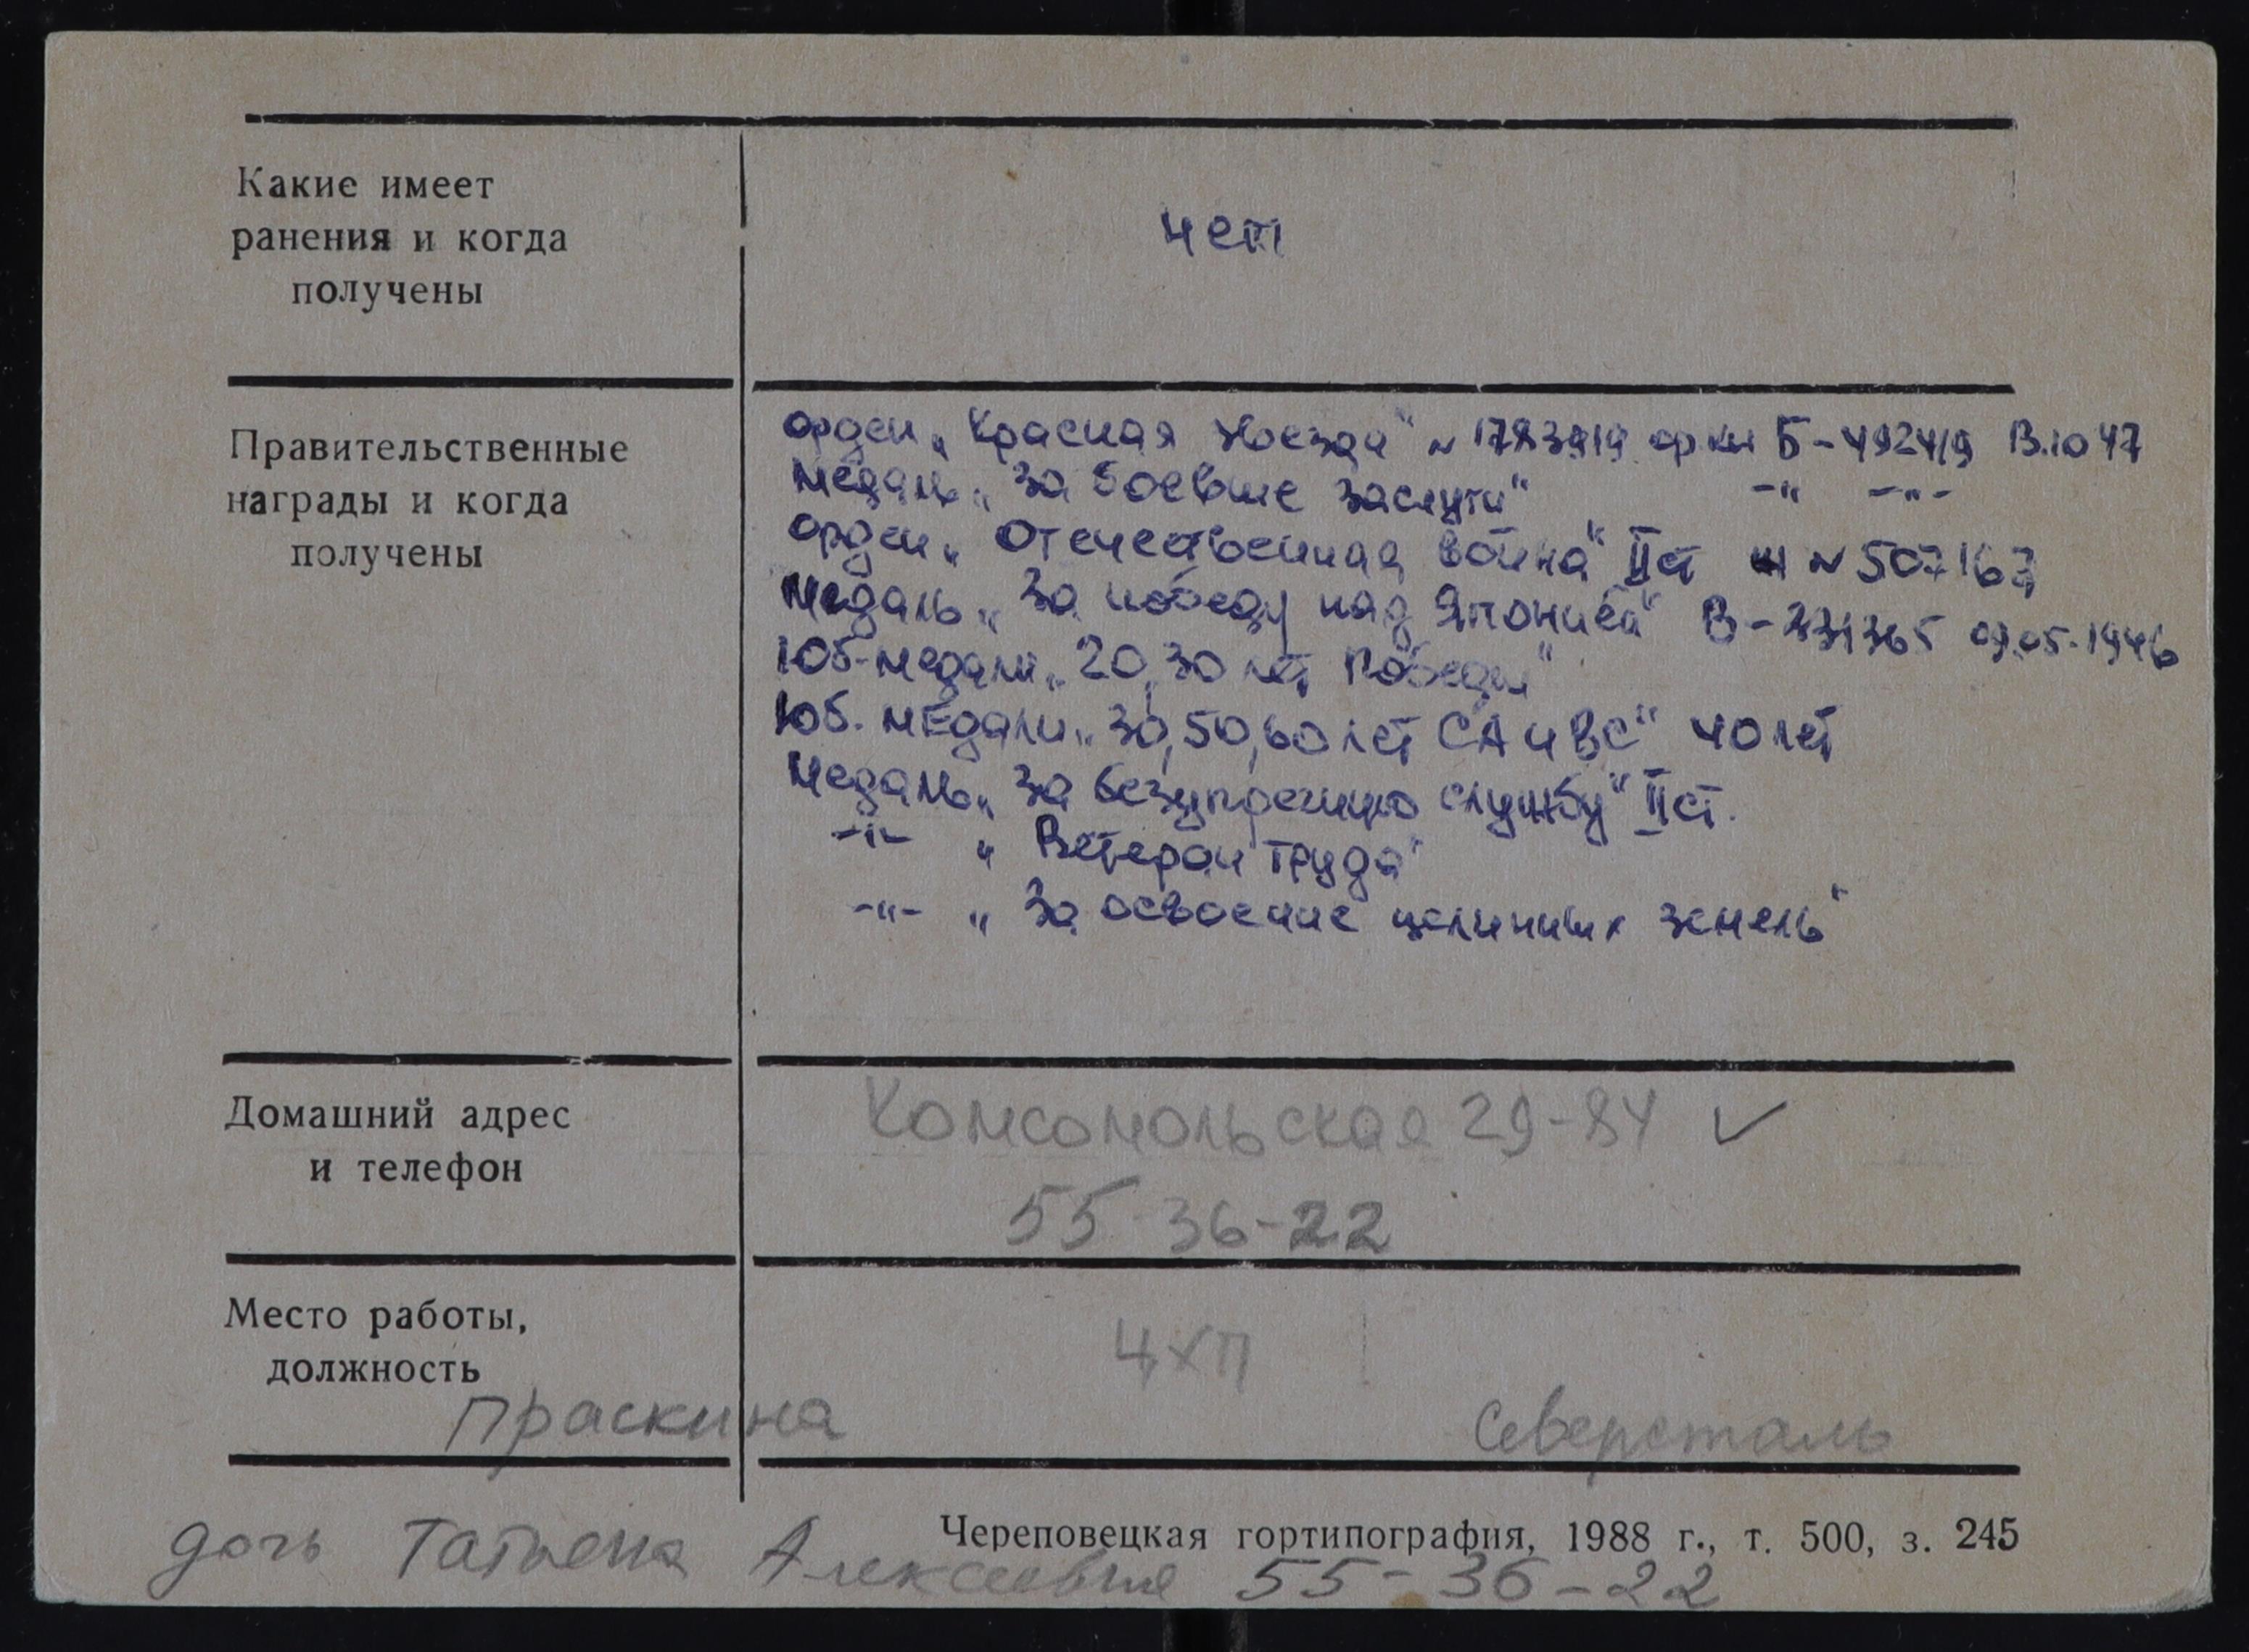 Какие имеет
ранения и когда
получены
нет
Правительственные
награды и когда
получены
орден „Красная Звезда“ № 1783919 ор кн Б-492419 В.10 47
Медаль „За боевые заслуги“ -„ -„-
орден „Отечественная война“ II ст № 507167
Медаль „За победу над Японией“ В- 09.05.1946
Юб-медали „20, 30 лет Победы“
Юб. медали „30, 50, 60 лет СА и ВС“ 40 лет
Медаль „За безупречную службу“ II ст.
-„- „Ветеран труда“
-„- „За освоение целинных земель“
Домашний адрес
и телефон
Комсомольская 29-84 ✓
55-36-22
Место работы,
должность
ЦХП
Праскина
Северсталь
Череповецкая гортипография, 1988 г., т. 500, з. 245
дочь Татьяна Алексеевна 55-36-22